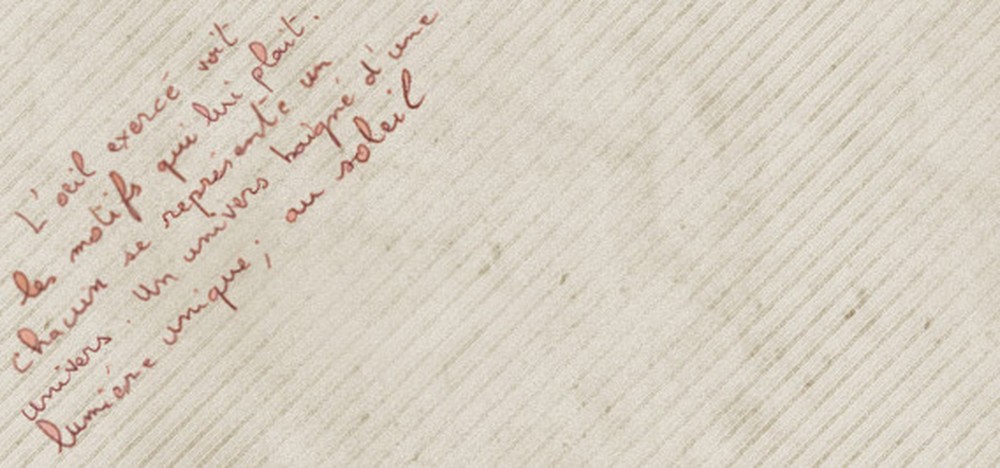 L'œil exercé voit
les motifs qui lui plait.
Chacun se représente un
univers. Un univers baigné d'une
lumière unique; au soleil